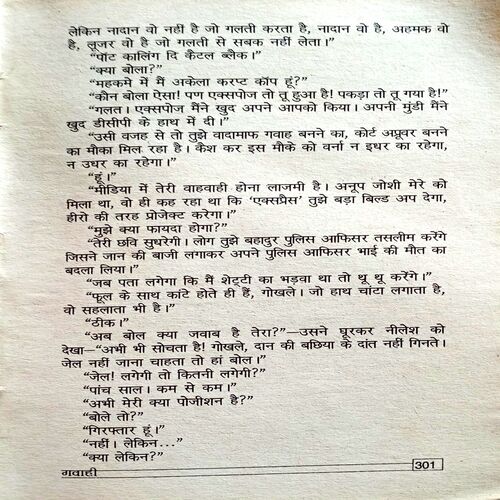 लेकिन नादान वो नहीं है जो गलती करता है, नादान वो है, अहमक वो
है, लूजर वो है जो गलती से सबक नहीं लेता।”
“पॉट कालिंग दि कैटल ब्लैक।”
“क्या बोला?”
“महकमे में मैं अकेला करप्ट कॉप हूं?”
“कौन बोला ऐसा! पण एक्सपोज तो तू हुआ है! पकड़ा तो तू गया है!”
“गलत। एक्सपोज मैंने खुद अपने आपको किया। अपनी मुंडी मैंने
खुद डीसीपी के हाथ में दी।”
“उसी वजह से तो तुझे वादामाफ गवाह बनने का, कोर्ट अप्रूवर बनने
का मौका मिल रहा है। कैश कर इस मौके को वर्ना न इधर का रहेगा,
न उधर का रहेगा।”
“हूं।”
“मीडिया में तेरी वाहवाही होना लाजमी है। अनूप जोशी मेरे को
मिला था, वो ही कह रहा था कि ‘एक्सप्रैस’ तुझे बड़ा बिल्ड अप देगा,
हीरो की तरह प्रोजेक्ट करेगा।”
“मुझे क्या फायदा होगा?”
“तेरी छवि सुधरेगी। लोग तुझे बहादुर पुलिस आफिसर तसलीम करेंगे
जिसने जान की बाजी लगाकर अपने पुलिस आफिसर भाई की मौत का
बदला लिया।”
“जब पता लगेगा कि मैं शेट्टी का भड़वा था तो थू थू करेंगे।”
“फूल के साथ कांटे होते ही हैं, गोखले। जो हाथ चांटा लगाता है,
वो सहलाता भी है।”
“ठीक।”
“अब बोल क्या जवाब है तेरा?”—उसने घूरकर नीलेश को
देखा—“अभी भी सोचता है! गोखले, दान की बछिया के दांत नहीं गिनते।
जेल नहीं जाना चाहता तो हां बोल।”
“जेल! लगेगी तो कितनी लगेगी?”
“पांच साल। कम से कम।”
“अभी मेरी क्या पोजीशन है?”
“बोले तो?”
“गिरफ्तार हूं।”
“नहीं। लेकिन...”
“क्या लेकिन?”
गवाही 301